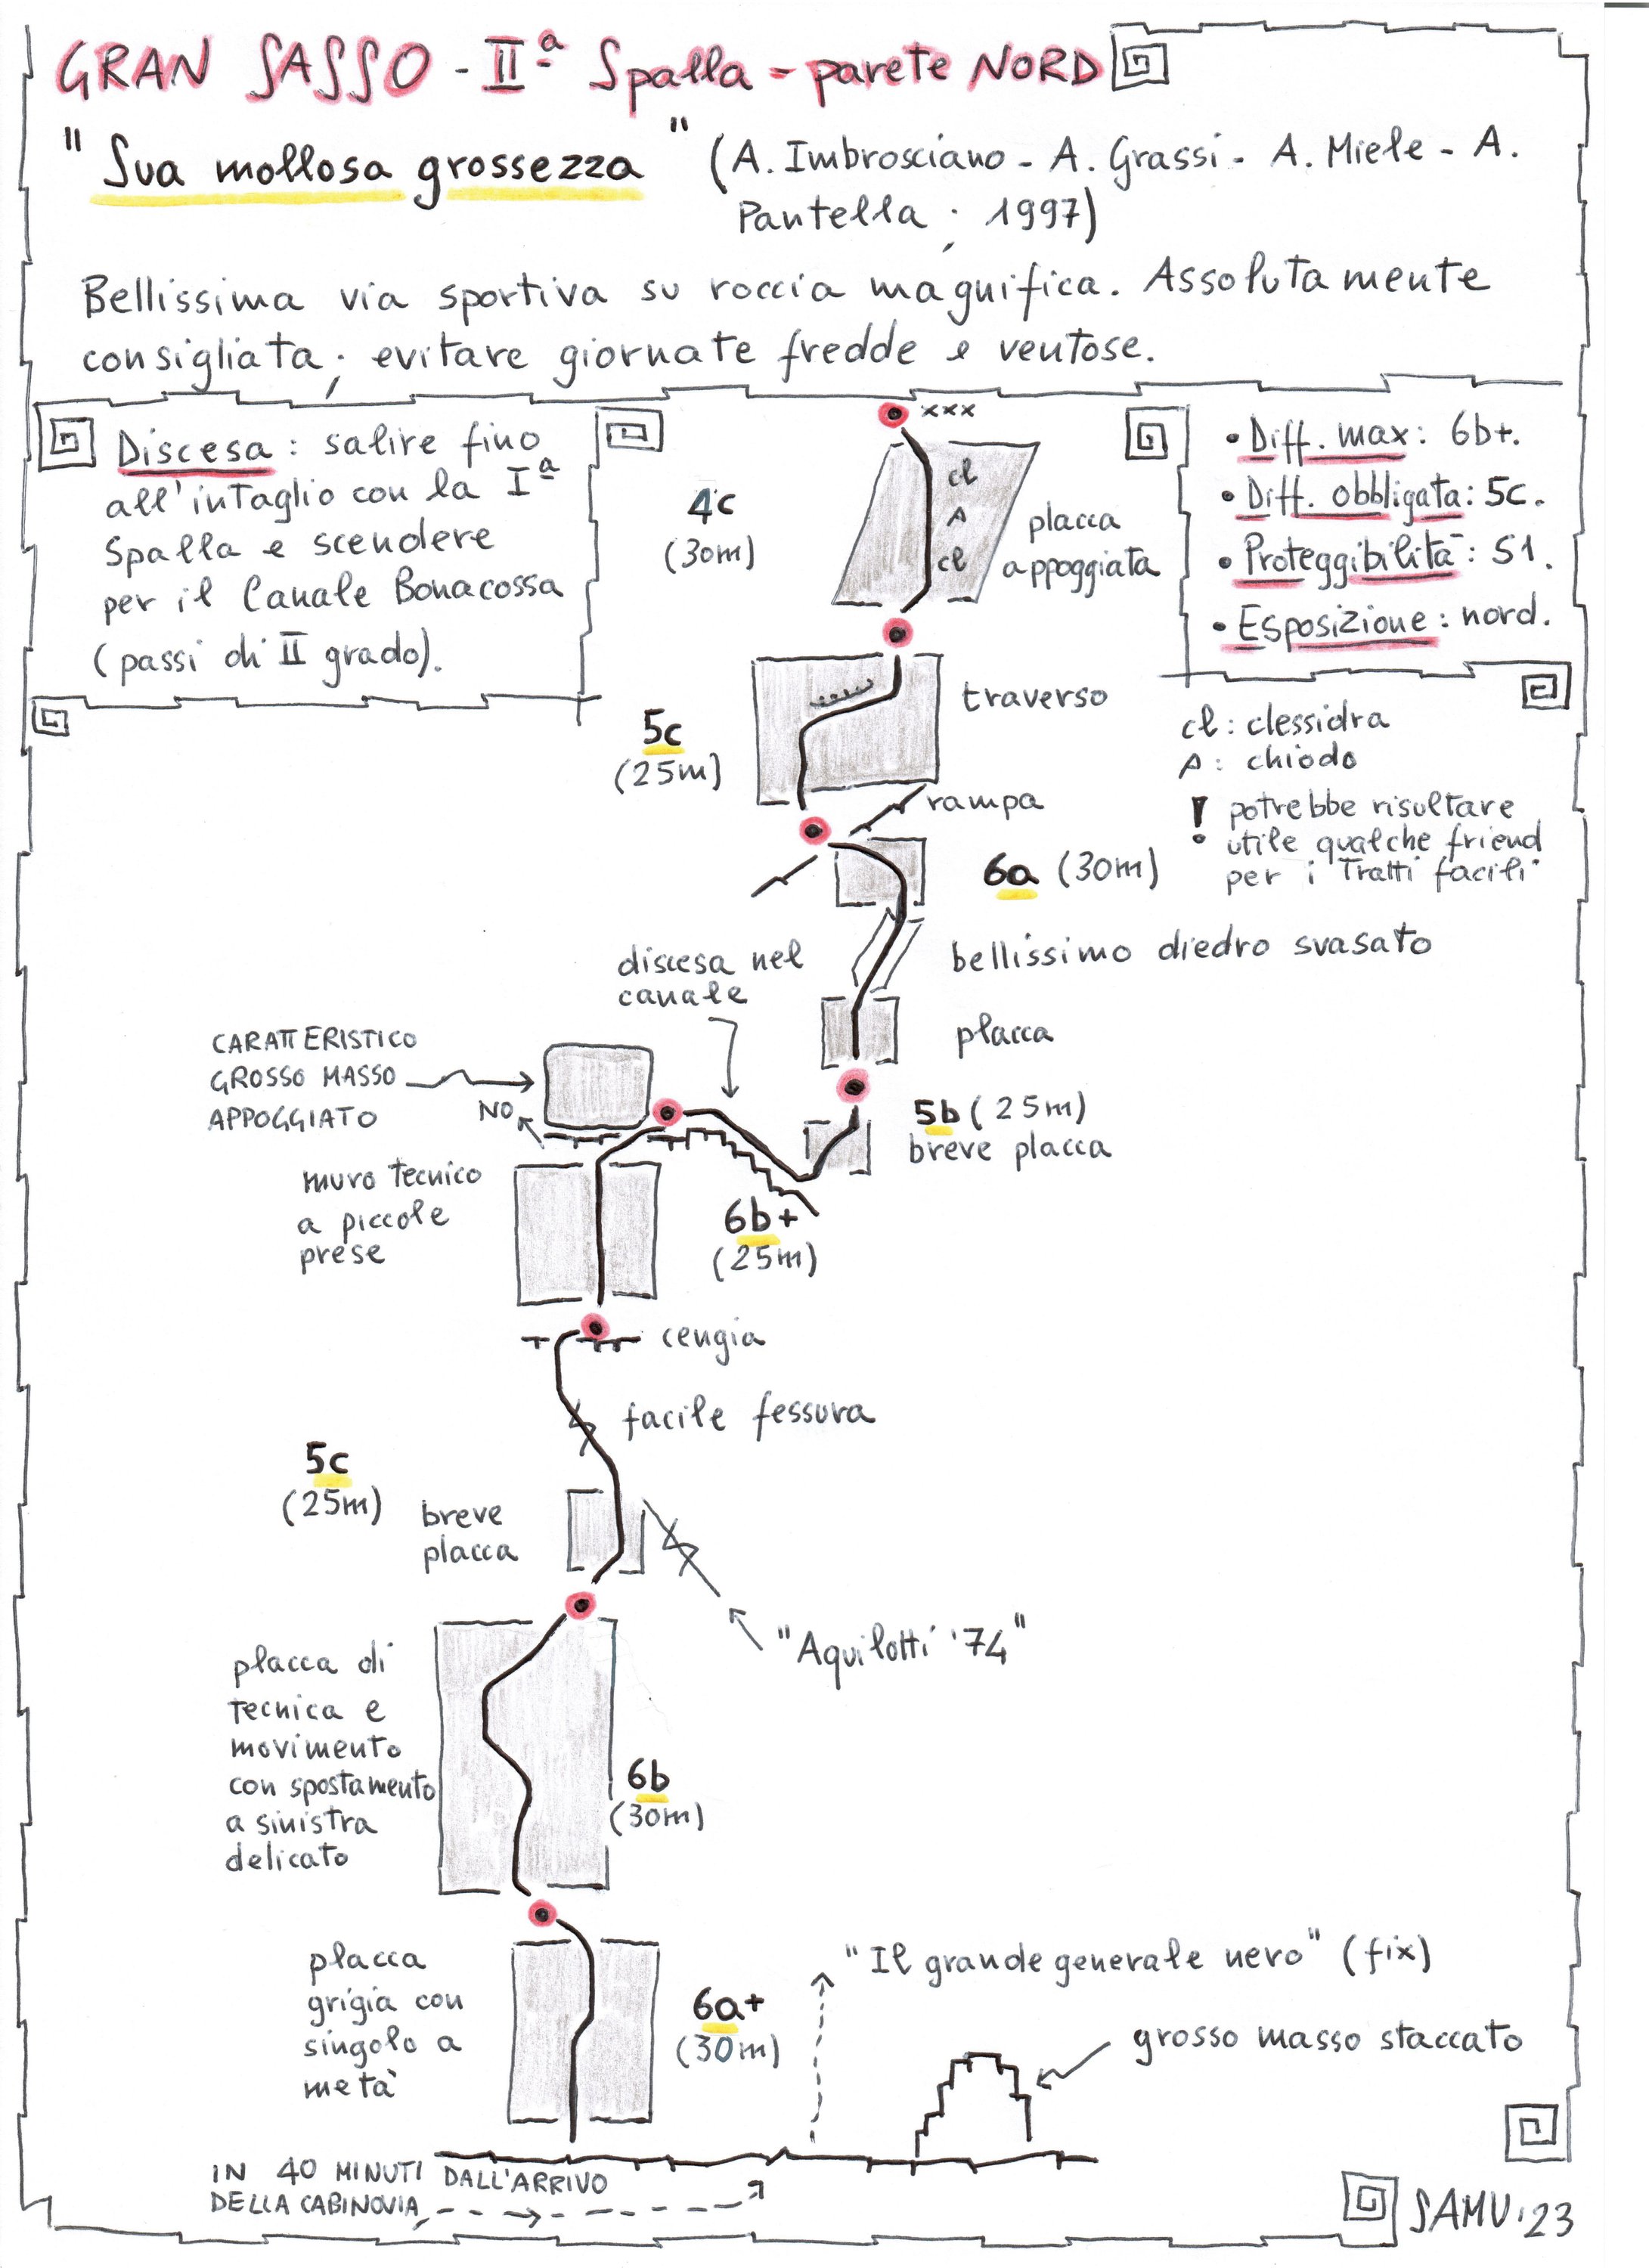 GRAN SASSO - IIª Spalla - parete NORD
"Sua mollosa grossezza" (A. Imbrosciano - A. Grassi - A. Miele - A.
Pantella; 1997)
Bellissima via sportiva su roccia magnifica. Assolutamente
consigliata; evitare giornate fredde e ventose.
Discesa: salire fino
all'intaglio con la Iª
Spalla e scendere
per il Canale Bonacossa
(passi di II grado).
• Diff. max: 6b+.
• Diff. obbligata: 5c.
• Proteggibilità: S1.
• Esposizione: nord.
cl: clessidra
A: chiodo
! potrebbe risultare
utile qualche friend
per i tratti facili
xxx
4c
(30m)
cl
A
cl
placca
appoggiata
traverso
5c
(25m)
rampa
6a (30m)
bellissimo diedro svasato
discesa nel
canale
placca
CARATTERISTICO
GROSSO MASSO
APPOGGIATO
NO
5b (25m)
breve placca
muro tecnico
a piccole
prese
6b+
(25m)
cengia
facile fessura
5c
(25m)
breve
placca
"Aquilotti '74"
placca di
tecnica e
movimento
con spostamento
a sinistra
delicato
6b
(30m)
placca
grigia con
singolo a
metà
6a+
(30m)
"Il grande generale nero" (fix)
grosso masso staccato
IN 40 MINUTI DALL'ARRIVO
DELLA CABINOVIA
SAMU '23